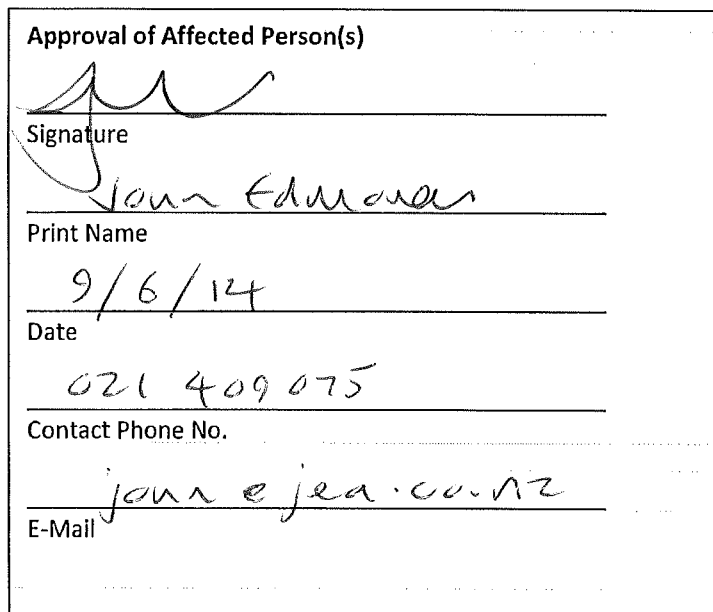 Approval of Affected Person(s)
Signature
John Edmonds
Print Name
9/6/14
Date
021 409 075
Contact Phone No.
john@jea.co.nz
E-Mail